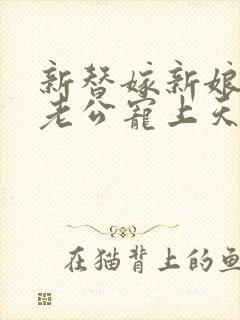 新替嫁新娘
老公寵上天
在猫背上的鱼